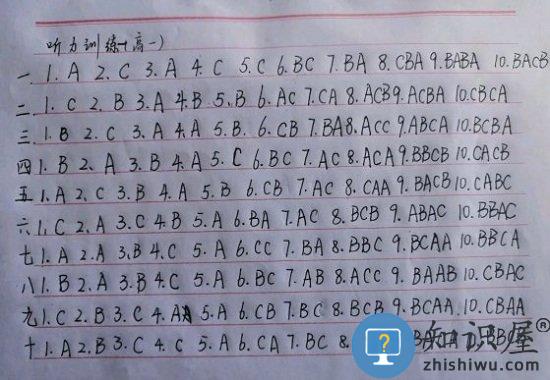 听力训练(高一)
一 1. A 2. C 3. A 4. C 5. C 6. BC 7. BA 8. CBA 9. BABA 10. BACB
二 1. C 2. B 3. A 4. B 5. B 6. AC 7. CA 8. ACB 9. ACBA 10. CBCA
三 1. B 2. C 3. A 4. A 5. B. 6. CB 7. BA 8. ACC 9. ABCA 10. BCBA
四 1. B 2. A 3. B 4. A 5. C 6. BC 7. AC 8. ACA 9. BBCB 10. CACB
五 1. A 2. C 3. B 4. A 5. B 6. CB 7. AC 8. CAA 9. BACB 10. CABC
六 1. C 2. A 3. C 4. B 5. A 6. BA 7. AC 8. BCB 9. ABAC 10. BBAC
七 1. A 2. A 3. B 4. C 5. A 6. CC 7. BA 8. BBC 9. BCAA 10. BBCA
八 1. B 2. A 3. B 4. C 5. A 6. BC 7. AB 8. ACC 9. BAAB 10. CBAC
九 1. C 2. B 3. C 4. A 5. A 6. CB 7. BC 8. BCB 9. BCAA. 10. CBAA
十 1. A 2. B 3. C 4. C 5. A 6. CA 7. BC 8.
知识屋®
zhishiwu.com